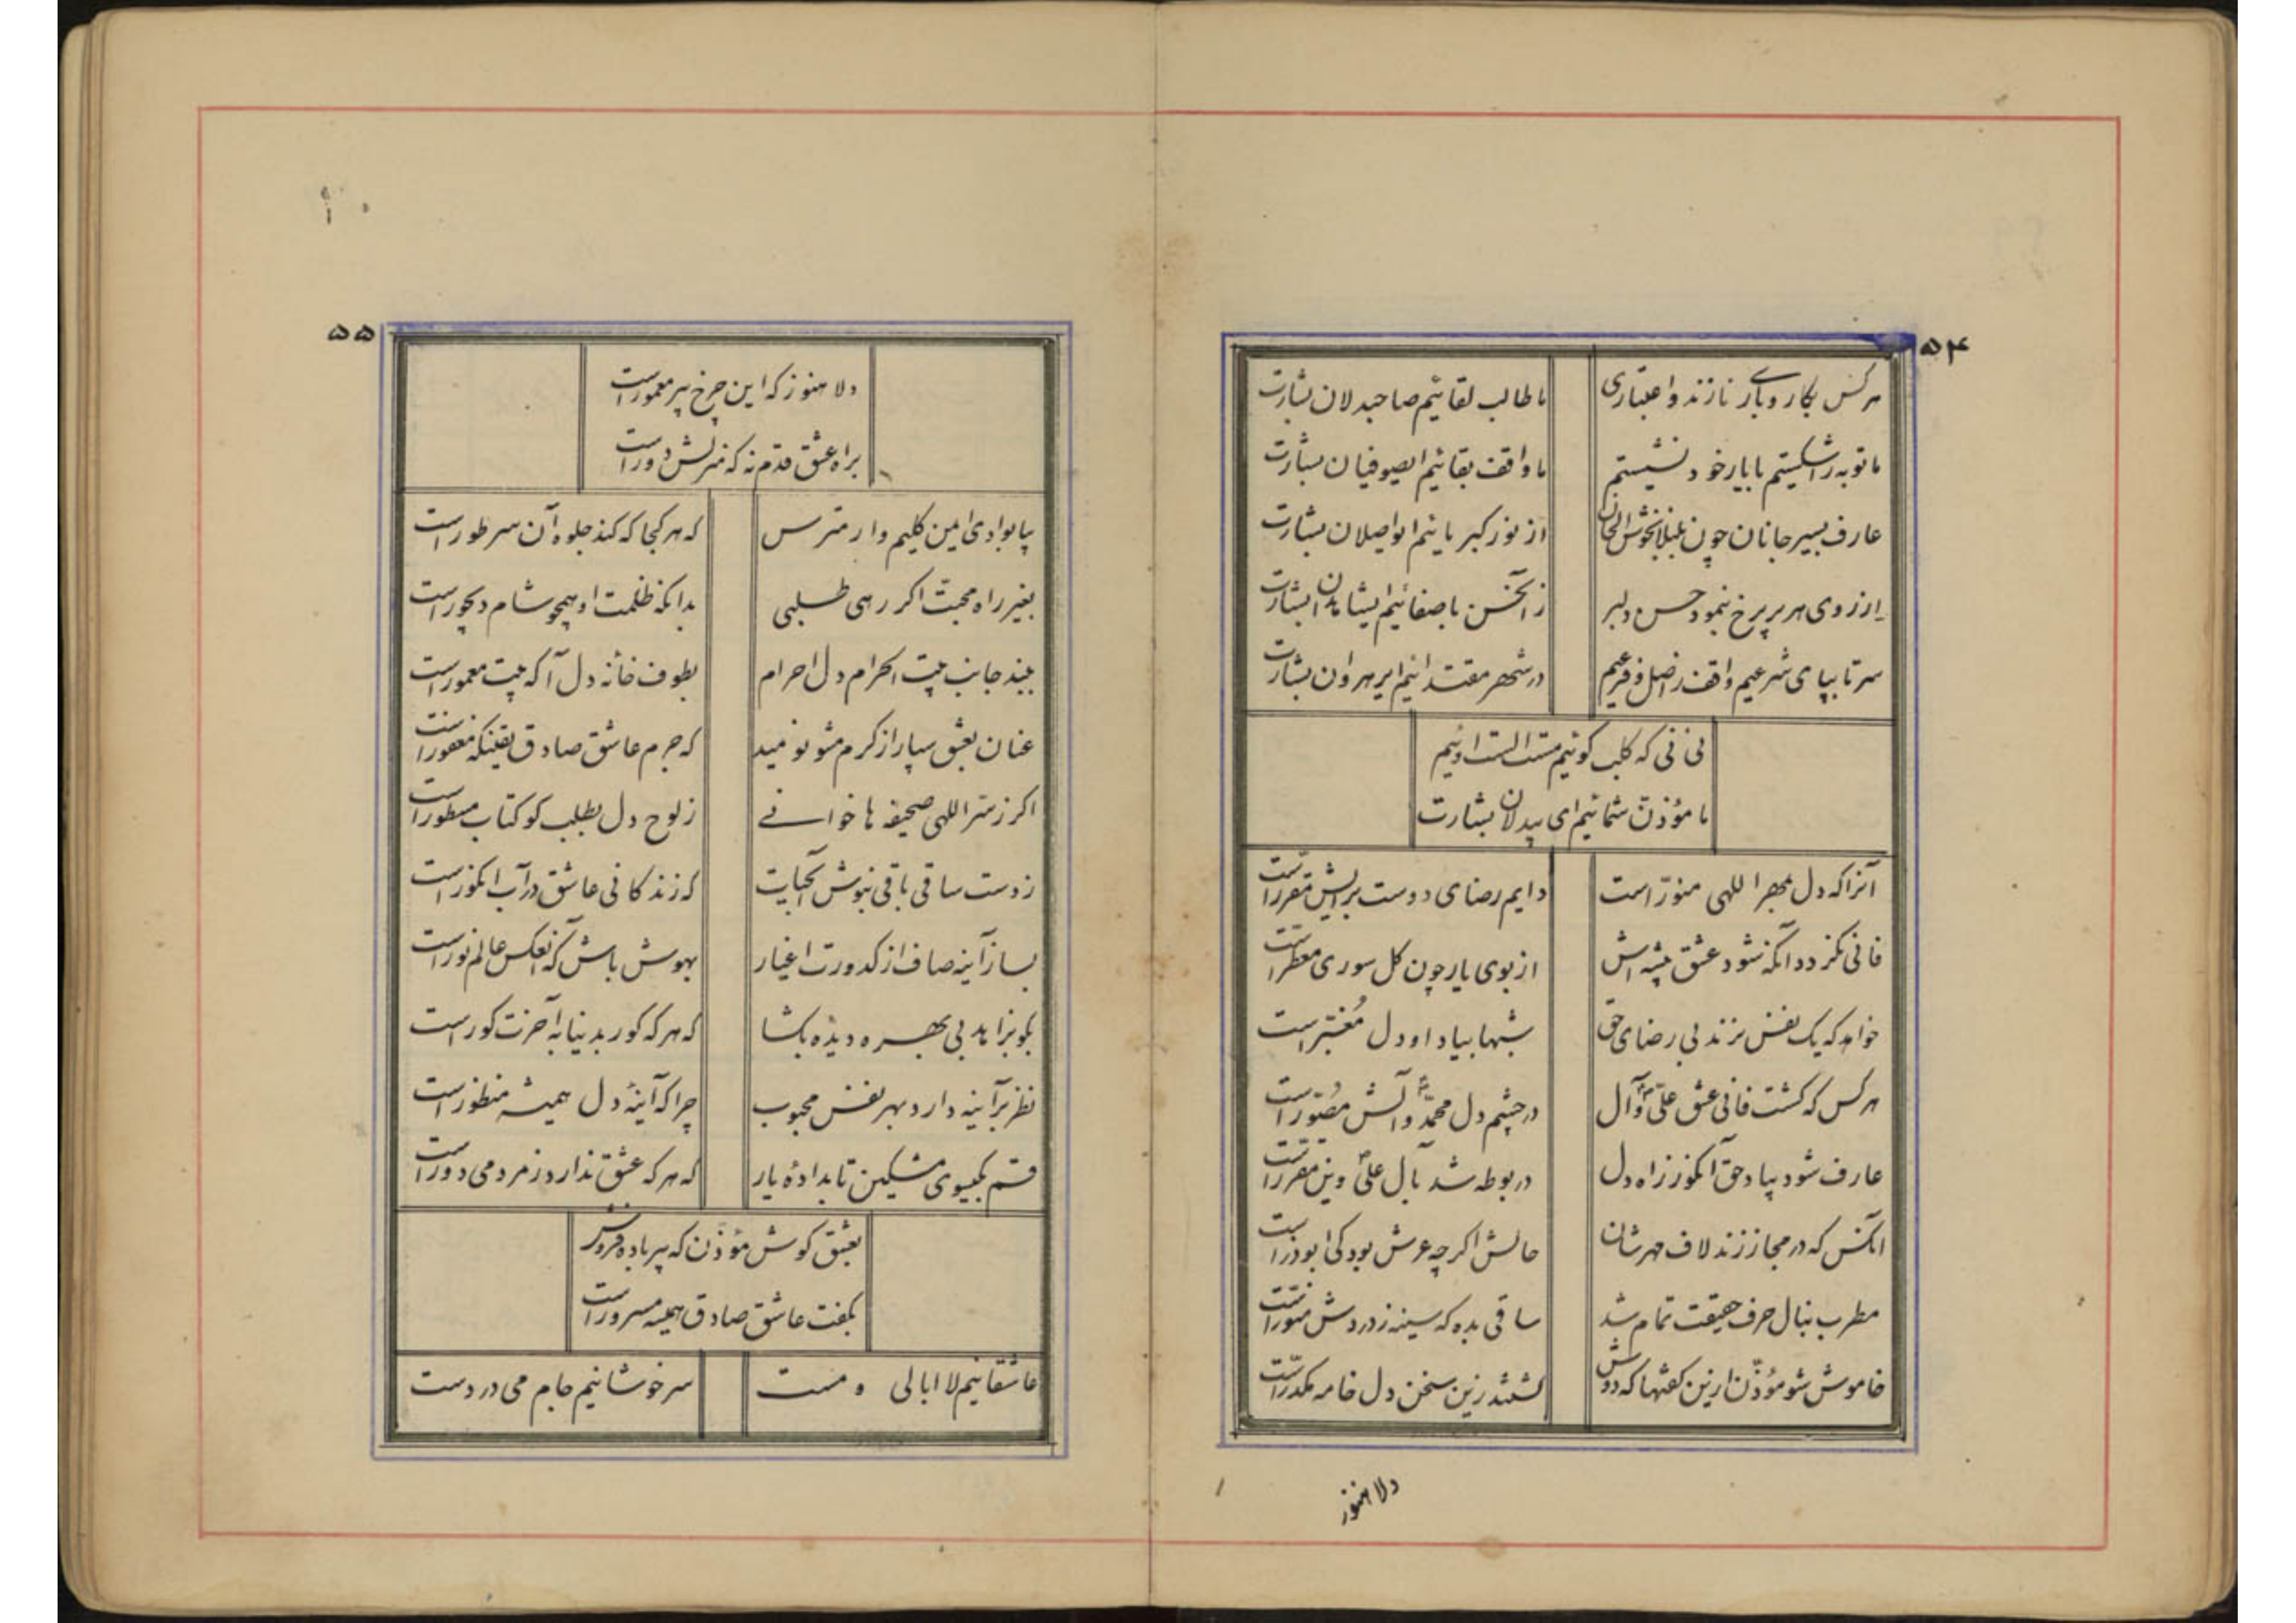 ۵۴
هرکس بکار و باری نازند و اعتباری
ما طالب لقائیم صاحبدلان بشارت
ما توبه را شکستیم با یار خود نشستیم
ما واقف بقائیم ایصوفیان بشارت
عارف بسیر جانان چون بلبلان خوش الحان
از نور کبریائیم ایواصلان بشارت
از روی هر پریرخ بنمود حسن دلبر
زآنحسن باصفائیم ایشاهدان بشارت
سر تا بپای شرعیم واقف ز اصل و فرعیم
در شهر مقتدائیم ایرهروان بشارت
نی نی که کلب کوئیم مست الست اوئیم
ما مؤذن شمائیم ای بیدلان بشارت
آنرا که دل بمهر اللهی منوّر است
دایم رضای دوست برایش مقرّر است
فانی نکردد آنکه شود عشق پیشه اش
از بوی یار چون کل سوری معطّر است
خواهد که یک نفس نزند بی رضای حق
شبها بیاد او دل مُغبّر است
هرکس که کشت فانی عشق علیّ و آل
در چشم دل محمدّ و آلش مصُوّر است
عارف شود بیاد حق آنکو ز راه دل
در بوطه شد بآل علیّ وین مقرر است
آنکس که در مجاز زند لاف مهرشان
حالش اکر چه عرش بود کی ابوذر است
مطرب بنال حرف حقیقت تمام شد
ساقی بده که سینه ز دردش منوّر است
خاموش شو مؤذّن ازین کفتها که دوش
لشد زین سخن دل خامه مکدّر است
دلا هنوز
۵۵
دلا هنوز که این چرخ پیر معمور است
براه عشق قدم نه که منزلش دور است
بیا بوادی ایمن کلیم وار مترس
که هر کجا که کند جلوه آن سر طور است
بغیر راه محبت اکر رهی طلبی
بدانکه ظلمت او همچو شام دیجور است
ببند جانب بیت الحرام دل احرام
بطوف خانه دل آ که بیت معمور است
عنان بعشق سپار از کرم مشو نومید
که جرم عاشق صادق یقینکه مغفور است
اکر ز سرّ اللهی صحیفه ها خوانی
ز لوح دل بطلب کو کتاب مسطور است
ز دست ساقی باقی بنوش آبحیات
که زندکانی عاشق در آب انکور است
بساز آینه صاف از کدورت اغیار
بهوش باش که انعکس عالم نور است
بکو بزاهد بی بهره دیده بکشا
که هرکه کور بدنیا به آخرت کور است
نظر بر آینه دارد بهر نفس محبوب
چرا که آینهٔ دل همیشه منظور است
قسم بکیسوی مشکین تابدادهٔ یار
که هرکه عشق ندارد ز مردمی دور است
بعشق کوش مؤذن که پیر باده فروش
بکفت عاشق صادق همیشه مسرور است
عاشقانیم لا ابالی و مست
سرخوشانیم جام می در دست